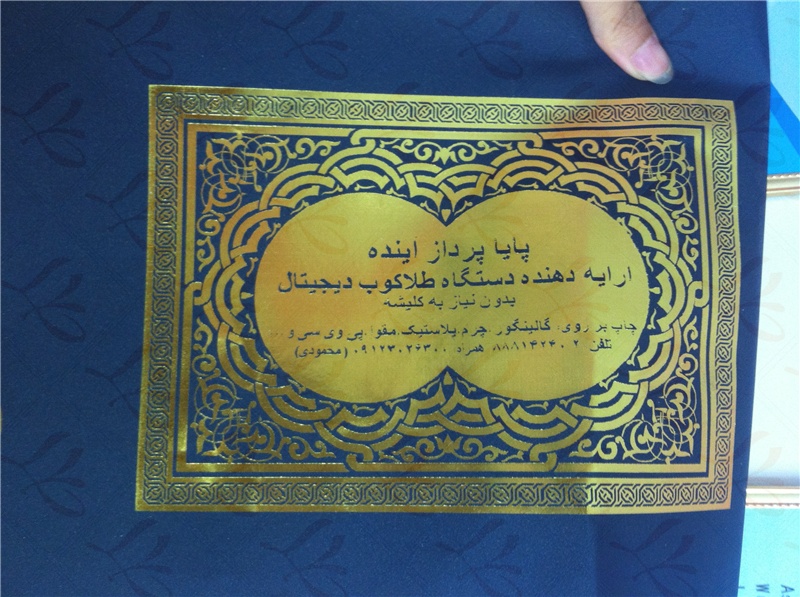 پایا پرداز اینده
ارایه دهنده دستگاه طلاکوب دیجیتال
بدون نیاز به کلیشه
چاپ بر روی: گالینگور. چرم. پلاستیک. مقوا. پی وی سی و
تلفن همراه (محمودی)